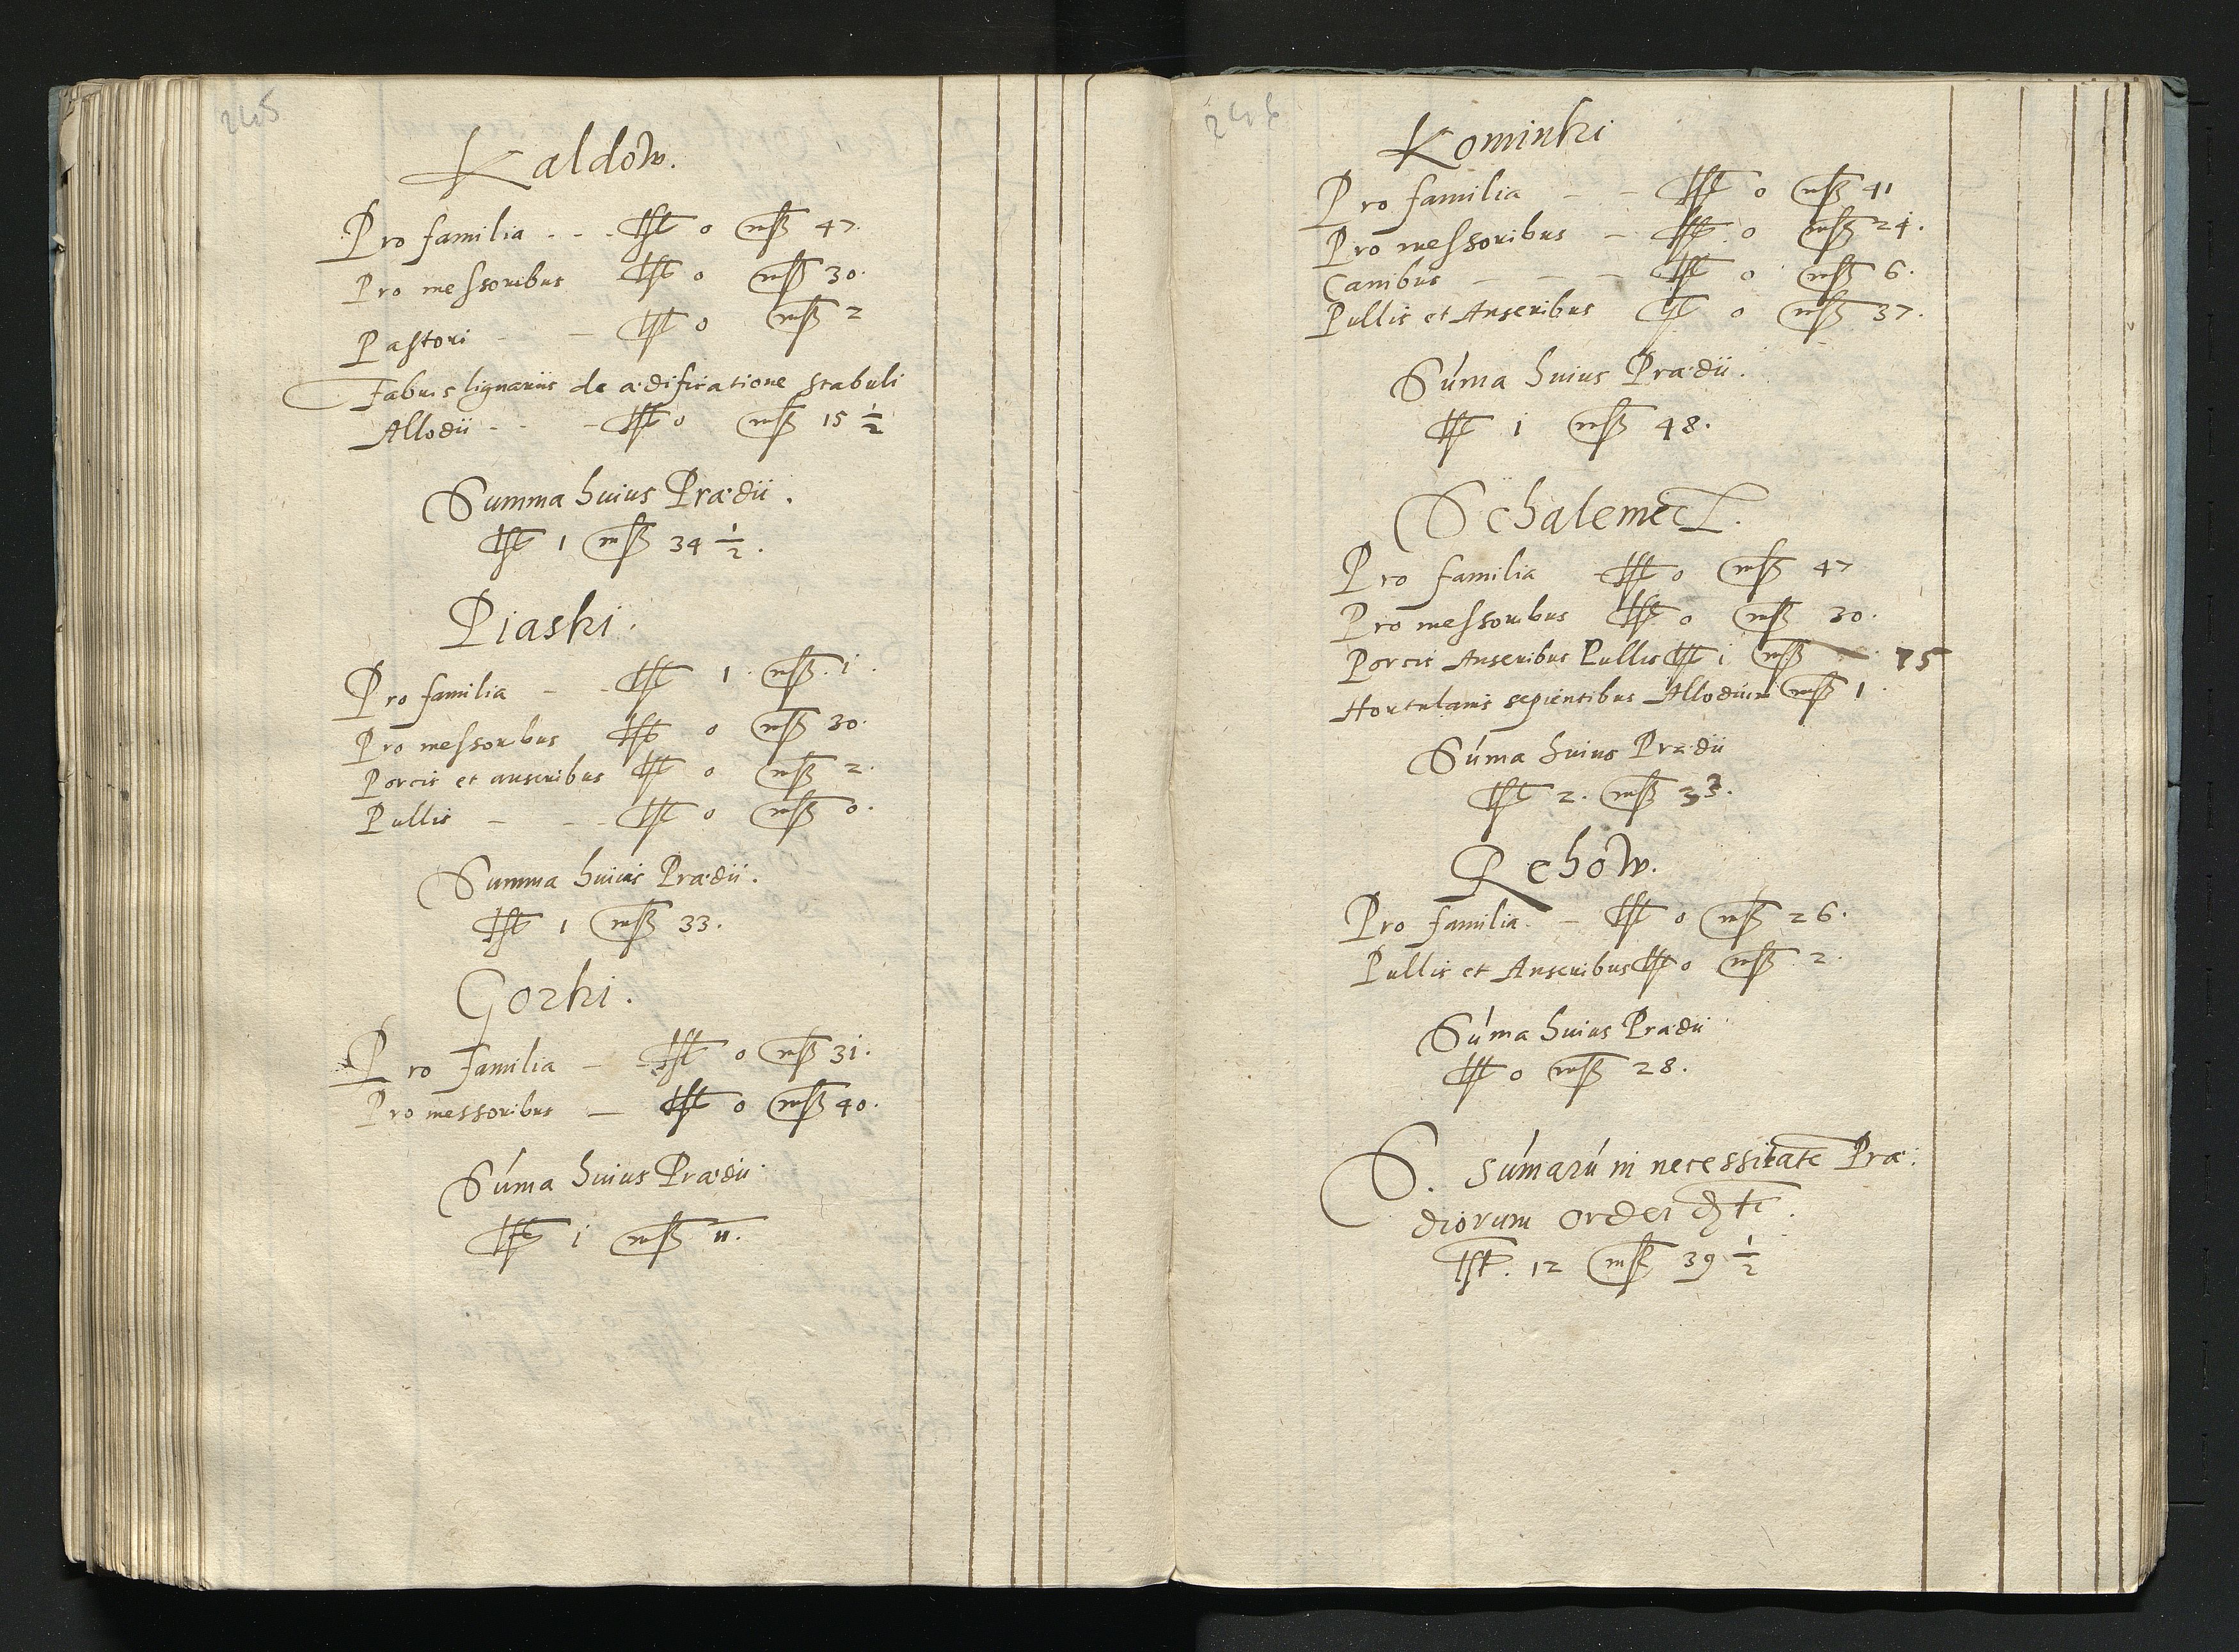 245
Kaldow.
Pro familia - - - lst 0 mß 47.
Pro messoribus lst 0 mß 30.
Pastori - - lst 0 mß 2
Fabris lignariis de ædificatione stabuli
Allodii - - - lst 0 mß 15 1/2
Summa huius Prædii.
lst 1 mß 34 1/2.
Piaski.
Pro familia - - lst 1. mß. i.
Pro messoribus lst 0 mß 30.
Porcis et anseribus lst 0 mß 2.
Pullis - - - lst 0 mß 0.
Summa huius Prædii.
lst 1 mß 33.
Gorki.
Pro familia - - lst 0 mß 3i.
Pro messoribus - lst 0 mß 40.
Súma huius Prædii.
lst i mß 11.
246
Kominki
Pro familia - - lst 0 mß 41
Pro messoribus - lst 0 mß 24.
Canibus - - - lst 0 mß 6.
Pullis et Anseribus lst 0 mß 37.
Súma huius Prædii.
lst i mß 48.
Schalemet.
Pro familia lst 0 mß 47
Pro messoribus lst 0 mß 30.
Porcis Anseribus Pullis lst i mß 15
Hortulanis sepientibus Allodium mß 1.
Súma huius Prædii
lst 2. mß 33.
Rehow.
Pro familia - lst 0 mß 26.
Pullis et Anseribus lst 0 mß 2.
Súma huius Prædii
lst 0 mß 28.
S. súmarú in necessitate Præ:
diorum ordei
lst. 12 mß 39 1/2